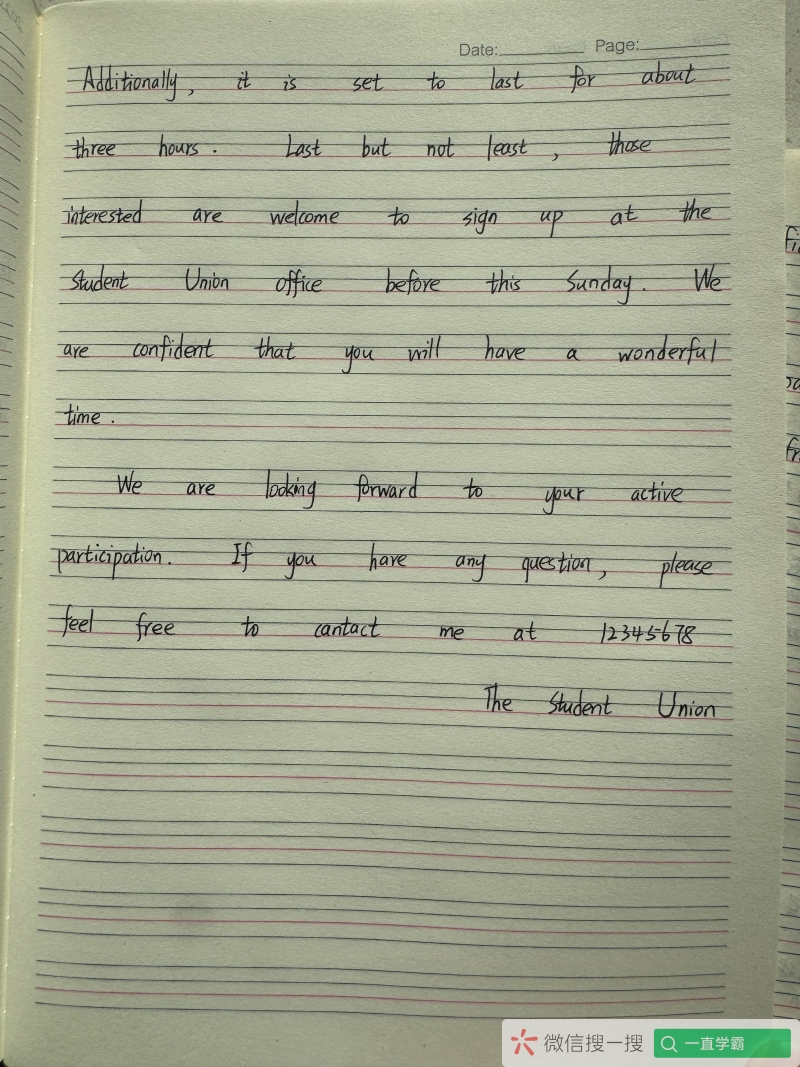 Date: Page:
Additionally, it is set to last for about
three hours. Last but not least, those
interested are welcome to sign up at the
Student Union office before this Sunday. We
are confident that you will have a wonderful
time.
We are looking forward to your active
participation. If you have any question, please
feel free to cantact me at 12345678
The Student Union
微信搜一搜
一直学霸